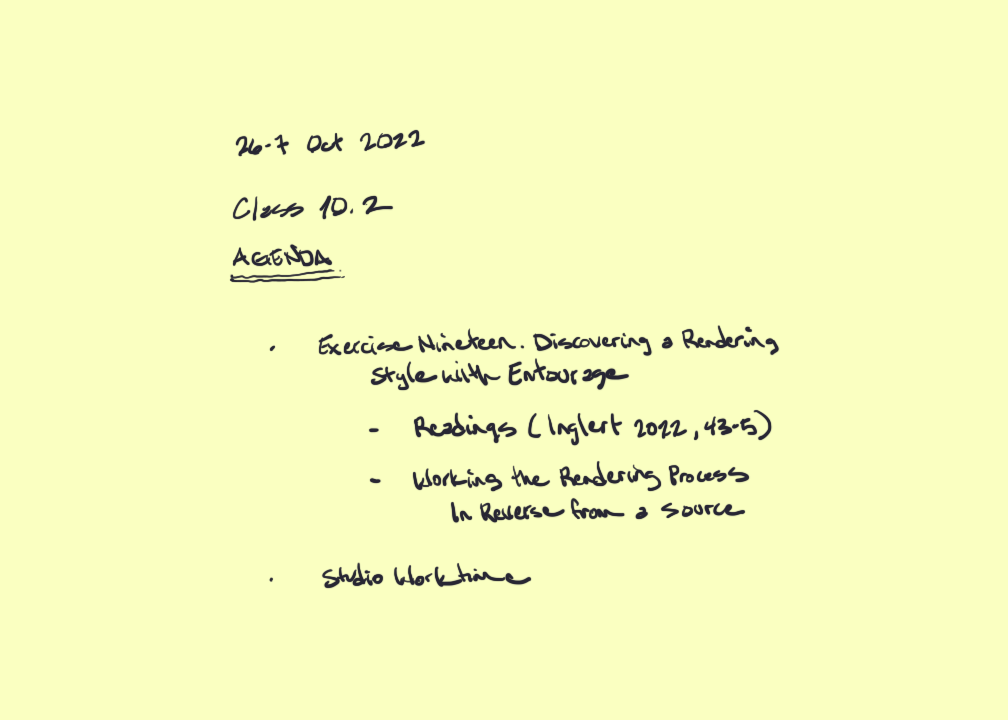 26-7 Oct 2022
Class 10.2
AGENDA
· Exercise Nineteen. Discovering a Rendering
Style with Entourage
- Readings (Inglert 2022, 43-5)
- Working the Rendering Process
In Reverse from a Source
· Studio Worktime